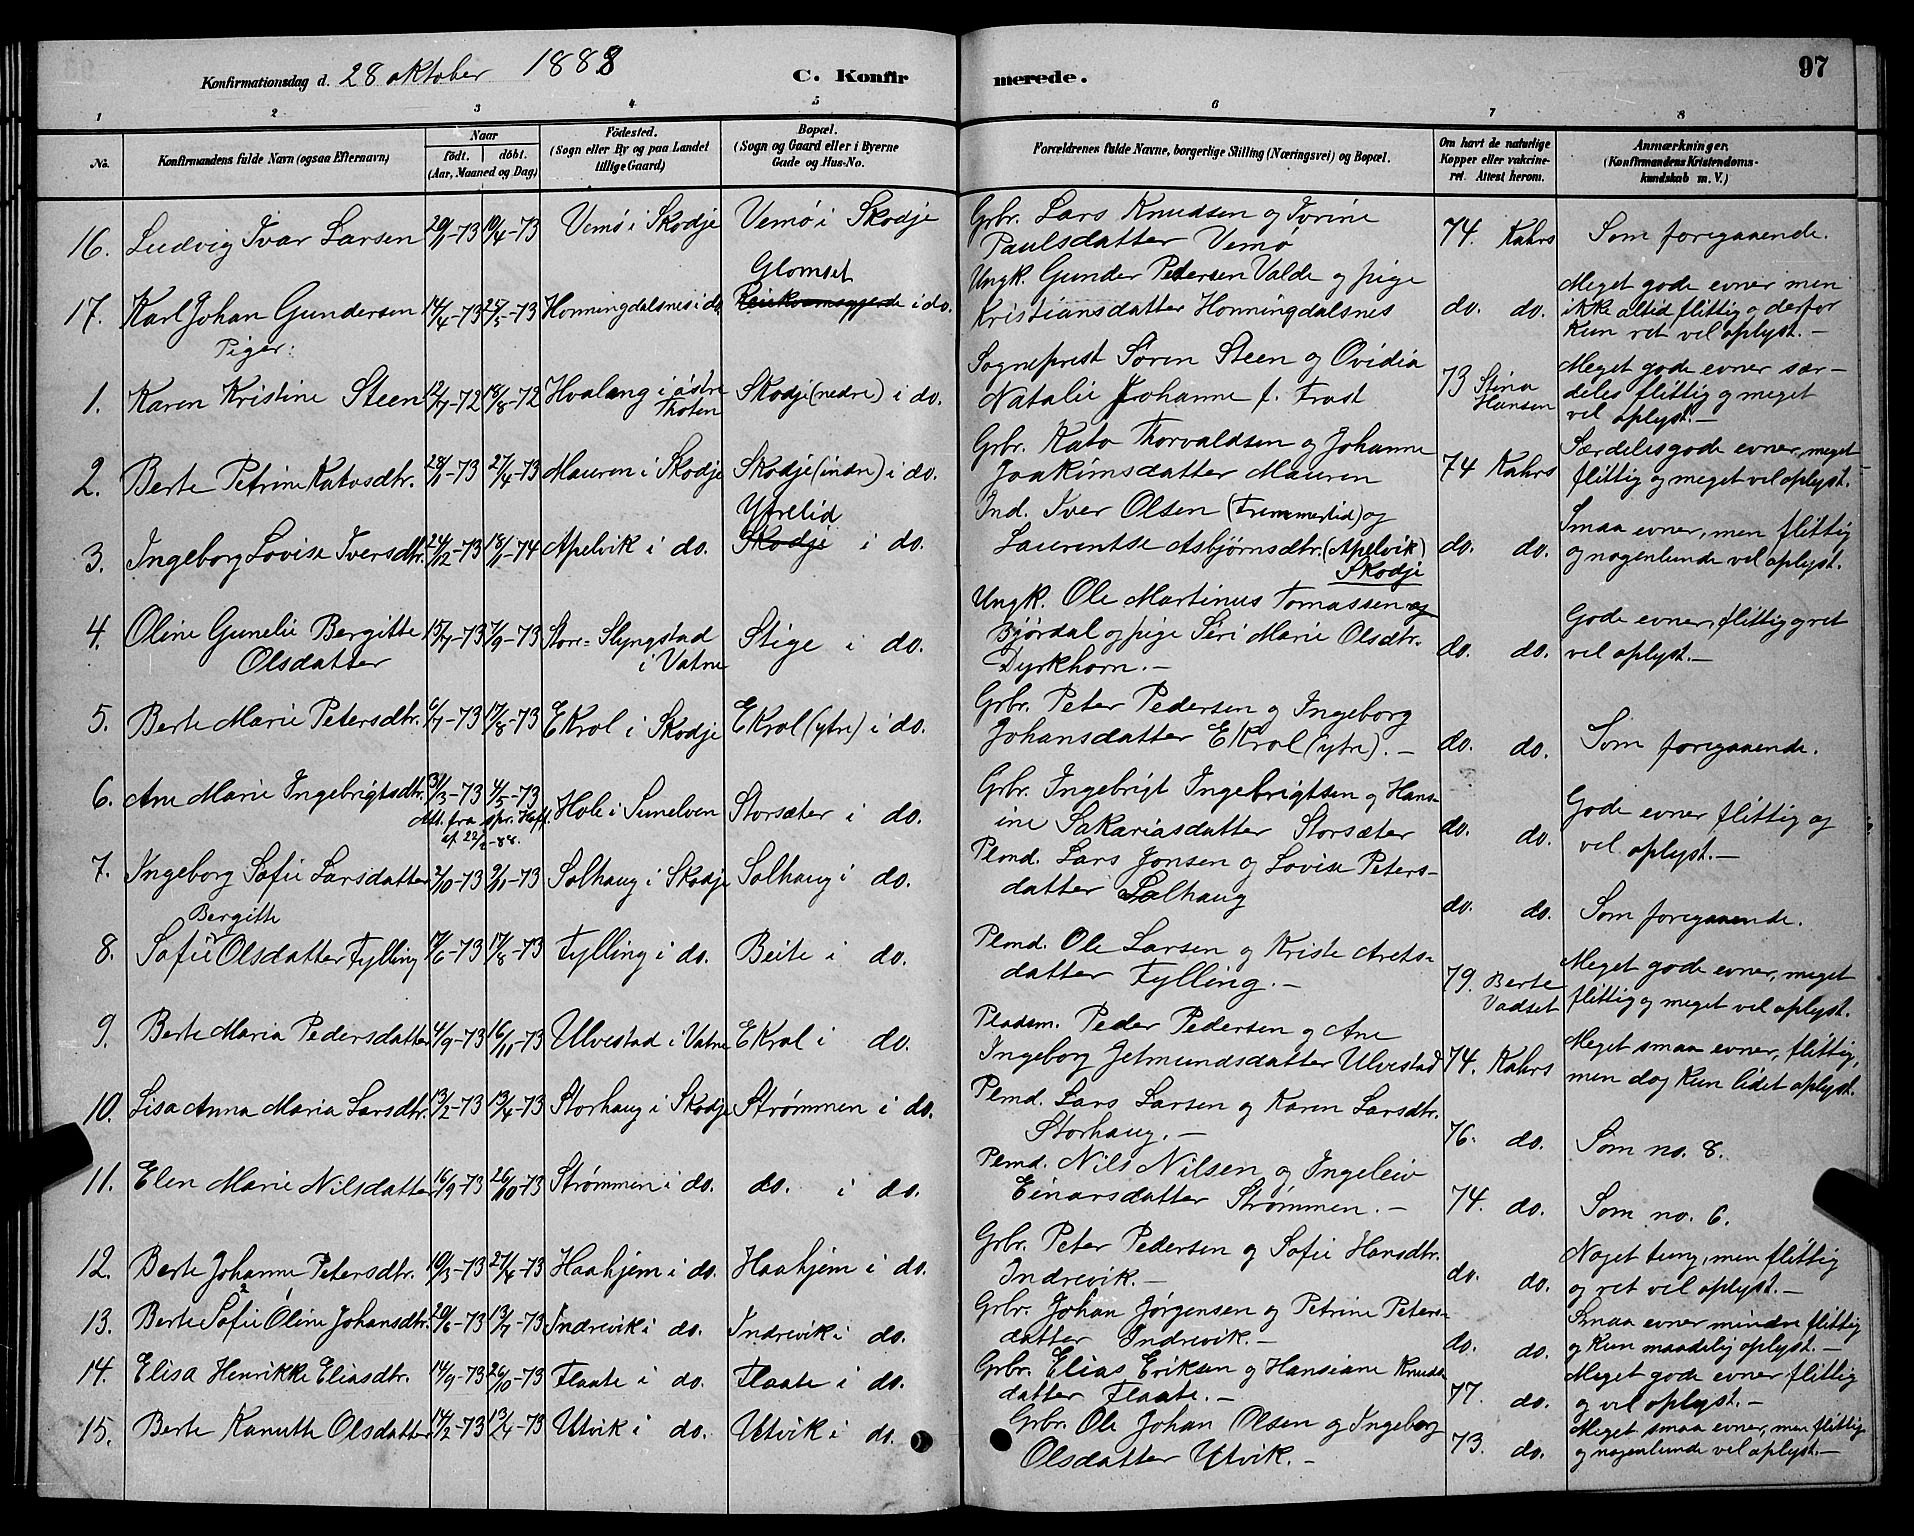 Konfirmationsdag d. 28 oktober 1888 C. Konfirmerede. 97
1 2 3 4 5 6 7 8
No. Konfirmandens fulde Navn (ogsaa Efternavn) Naar født. døbt. (Aar, Maaned og Dag) Fødested. (Sogn eller By og paa Landet tillige Gaard) Bopæl. (Sogn og Gaard eller i Byerne Gade og Hus-No. Forældrenes fulde Navne, borgerlige Stilling (Næringsvei) og Bopæl. Om havt de naturlige Kopper eller vakcineret. Attest herom. Anmærkninger. (Konfirmandens Kristendomskundskab m. V.)
16. Ludvig Ivar Larsen 20/1-73 19/4-73 Vemø i Skodje Vemø i Skodje Grbr. Lars Knudsen og Ivrine Paulsdatter Vemø 74. Kahrs Som foregaaende.
17. Karl Johan Gundersen 14/4-73 25/5-73 Honningdalsnes i do. Glomset i do. Ungk. Gunder Petersen Valde og pige Kristiansdatter Honningdalsnes do. do. Meget gode evner men ikke altid flittig og derfor kun ret vel oplyst.-
Piger:
1. Karen Kristine Steen 12/7-72 18/8-72 Hvalang i østre Thoten Skodje (nedre) i do. Sogneprest Søren Steen og Ovidia Natalie Johanne f. Frost 73 Stina Hansen Meget gode evner særdeles flittig og meget vel oplyst.-
2. Berte Petrine Katosdtr. 28/1-73 27/4-73 Mauren i Skodje Skodje (indre) i do. Grbr. Kato Thorvaldsen og Johanne Joakimsdatter Mauren 74 Kahrs Særdeles gode evner, meget flittig og meget vel oplyst.
3. Ingeborg Lovise Iversdtr. 24/12-73 18/1-74 Apelvik i do. Ytrelid Skodje i do. Ind. Iver Olsen (Fremmerlid) og Laurentse Asbjørnsdtr. (Apelvik) Skodje do. do. Smaa evner, men flittig og nogenlunde vel oplyst.
4. Oline Gunelie Bergitte Olsdatter 15/7-73 7/9-73 Stor-Slyngstad i Vatne Stige i do. Ungk. Ole Martinus Tomassen Bjørdal og pige Seri Marie Olsdtr. Dyrkhorn.- do. do. Gode evner, flittig og ret vel oplyst.-
5. Berte Marie Petersdtr. 6/7-73 17/8-73 Ekrol i Skodje Ekrol (ytre) i do. Grbr. Peter Pedersen og Ingeborg Johansdatter Ekrol (ytre).- do. do. Som foregaaende.
6. Ane Marie Ingebrigtsdtr. 31/3-73 4/5-73 Att. fra spr. Hoff. af 22/2-88. Hole i Sunelven Storsæter i do. Grbr. Ingebrigt Ingebrigtsen og Hansine Sakariasdatter Storsæter do. do. Gode evner flittig og vel oplyst.-
7. Ingeborg Sofie Larsdatter 2/10-73 9/11-73 Solhaug i Skodje Solhaug i do. Plmd. Lars Jonsen og Lovise Petersdatter Solhaug do. do. Som foregaaende.
8. Sofie Bergitte Olsdatter Fylling 17/6-73 17/8-73 Fylling i do. Beite i do. Plmd. Ole Larsen og Kriste Aretsdatter Fylling.- 79. Berte Vadset Meget gode evner, meget flittig og meget vel oplyst.
9. Berte Maria Pedersdatter 4/9-73 16/11-73 Ulvestad i Vatne Ekrol i do. Pladsm. Peder Pedersen og Ane Ingeborg Jetmundsdatter Ulvestad 74. Kahrs Meget smaa evner, flittig, men dog kun lidet oplyst.
10. Lisa Anna Maria Larsdtr. 13/2-73 13/4-73 Storhaug i Skodje Strømmen i do. Plmd. Lars Larsen og Karen Larsdtr. Storhaug.- 76. do. Som no. 8.
11. Elen Marie Nilsdatter 16/9-73 26/10-73 Strømmen i do. do. i do. Plmd. Nils Nilsen og Ingeleiv Einarsdatter Strømmen.- 74. do. Som no. 6.
12. Berte Johanne Petersdtr. 19/3-73 27/4-73 Haahjem i do. Haahjem i do. Grbr. Peter Pedersen og Sofie Hansdtr. Indrevik.- do. do. Noget tung, men flittig og ret vel oplyst.-
13. Berte Sofie Oline Johansdtr. 20/6-73 13/7-73 Indrevik i do. Indrevik i do. Grbr. Johan Jørgensen og Petrine Petersdatter Indrevik.- do. do. Smaa evner mindre flittig og kun maadelig oplyst.-
14. Elisa Henrikke Eliasdtr. 14/9-73 26/10-73 Flaate i do. Flaate i do. Grbr. Elias Eriksen og Hansiane Knudsdatter Flaate.- 77. do. Meget gode evner flittig og vel oplyst.-
15. Berte Kanutte Olsdatter 14/2-73 13/4-73 Utvik i do. Utvik i do. Grbr. Ole Johan Olsen og Ingeborg Olsdatter Utvik.- 73. do. Meget smaa evner, men flittig og nogenlunde vel oplyst.-